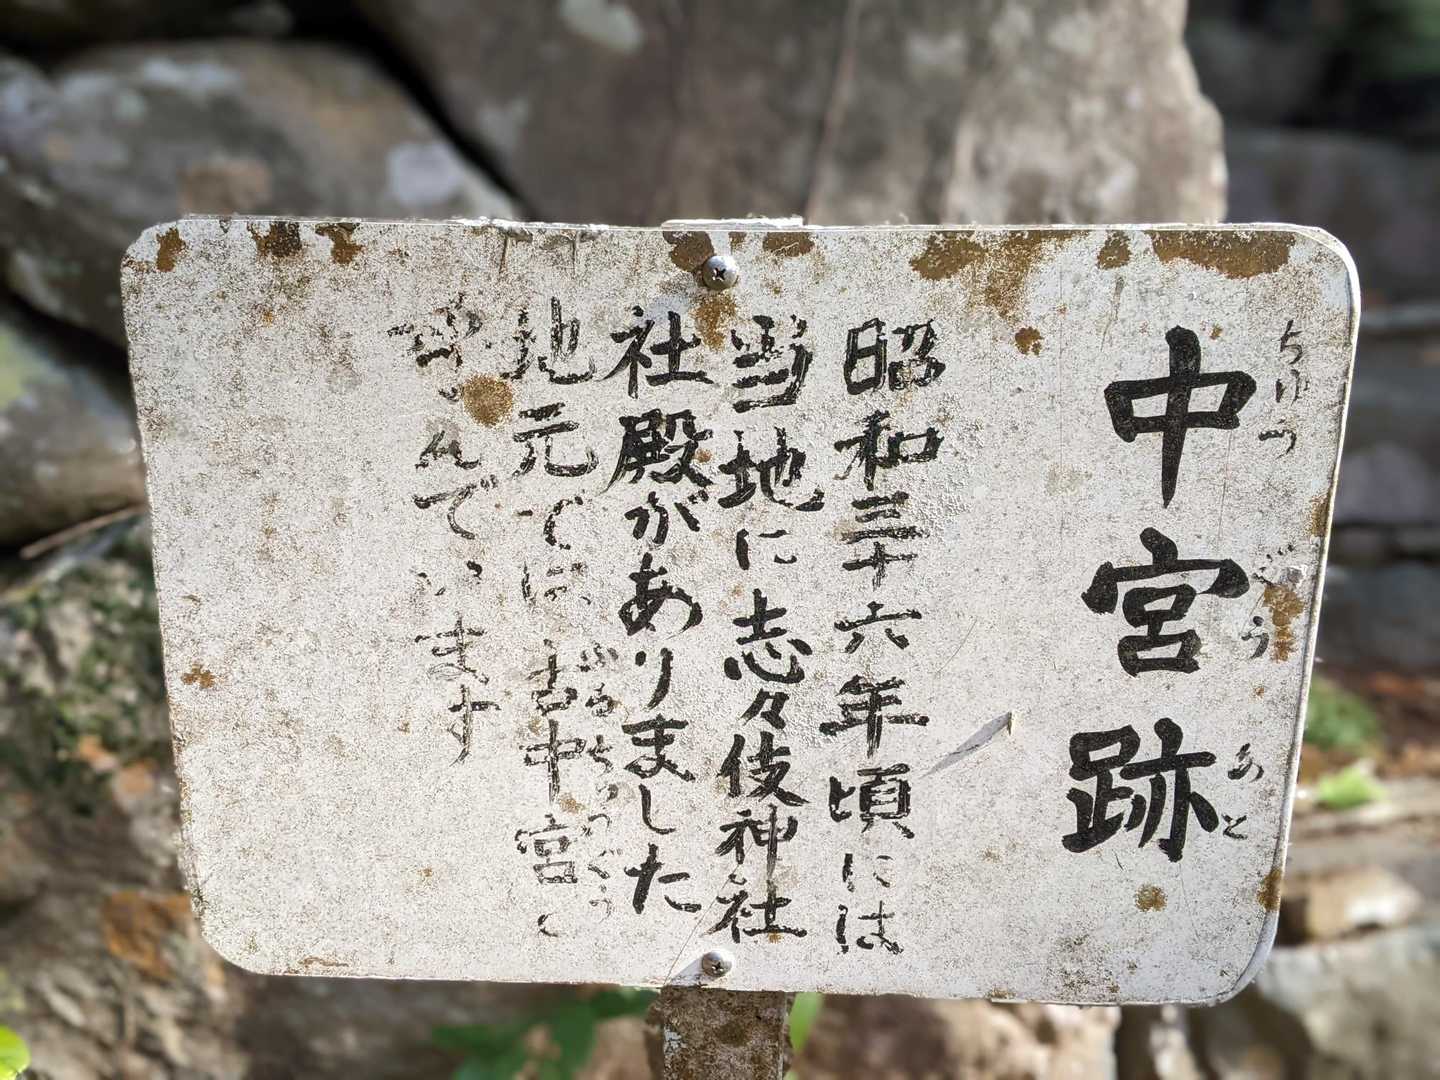 中宮跡
ちゆうぐうあと
昭和三十六年頃には
当地に志々伎神社
社殿がありました
地元では古中宮と
ふるちゅうぐう
呼んでいます